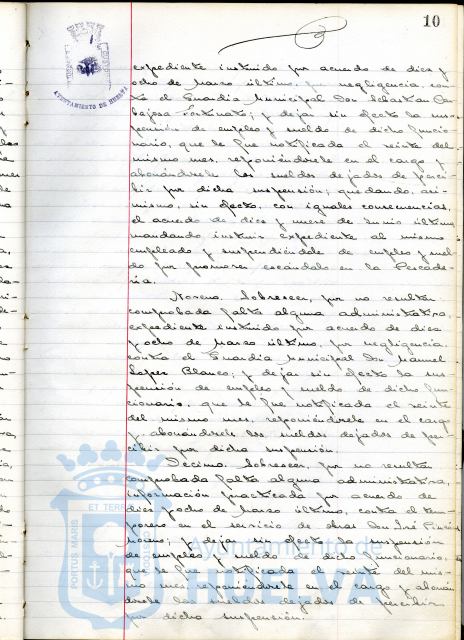 10
AYUNTAMIENTO DE HUELVA
expediente instruido por acuerdo de diez y
ocho de Marzo último, por negligencia, con-
tra el Guardia Municipal Don Sebastian Ca-
bajosa Fortunato; y dejar sin efecto la sus-
pensión de empleo y sueldo de dicho funcio-
nario, que le fue notificada el veinte del
mismo mes, reponiéndosele en el cargo y
abonándosele los sueldos dejados de perci-
bir por dicha suspensión; quedando, asi-
mismo, sin efecto, con iguales consecuencias,
el acuerdo de diez y nueve de Junio último
mandando instruir expediente al mismo
empleado y suspendiéndole de empleo y suel-
do por promover escándalo en la Pescade-
ría.
Noveno. Sobreseer, por no resultar
comprobada falta alguna administrativa,
expediente instruido por acuerdo de diez
y ocho de Marzo último, por negligencia,
contra el Guardia Municipal Don Manuel
Lopez Blanco; y dejar sin efecto la sus-
pensión de empleo y sueldo de dicho fun-
cionario, que le fue notificada el veinte
del mismo mes, reponiéndosele en el cargo
y abonándosele los sueldos dejados de per-
cibir por dicha suspensión.
Decimo. Sobreseer, por no resultar
comprobada falta alguna administrativa,
información practicada por acuerdo de
diez y ocho de Marzo último, contra el tem-
porero en el servicio de obras Don José
y dejar sin efecto la suspensión
de empleo y sueldo de dicho funcionario,
que le fue notificada el veinte del mis-
mo mes, reponiéndosele en el cargo y abonán-
dosele los sueldos dejados de percibir
por dicha suspensión.
PORTUS MARIS ET TERRAE CUSTODIA
Ayuntamiento de
HUELVA